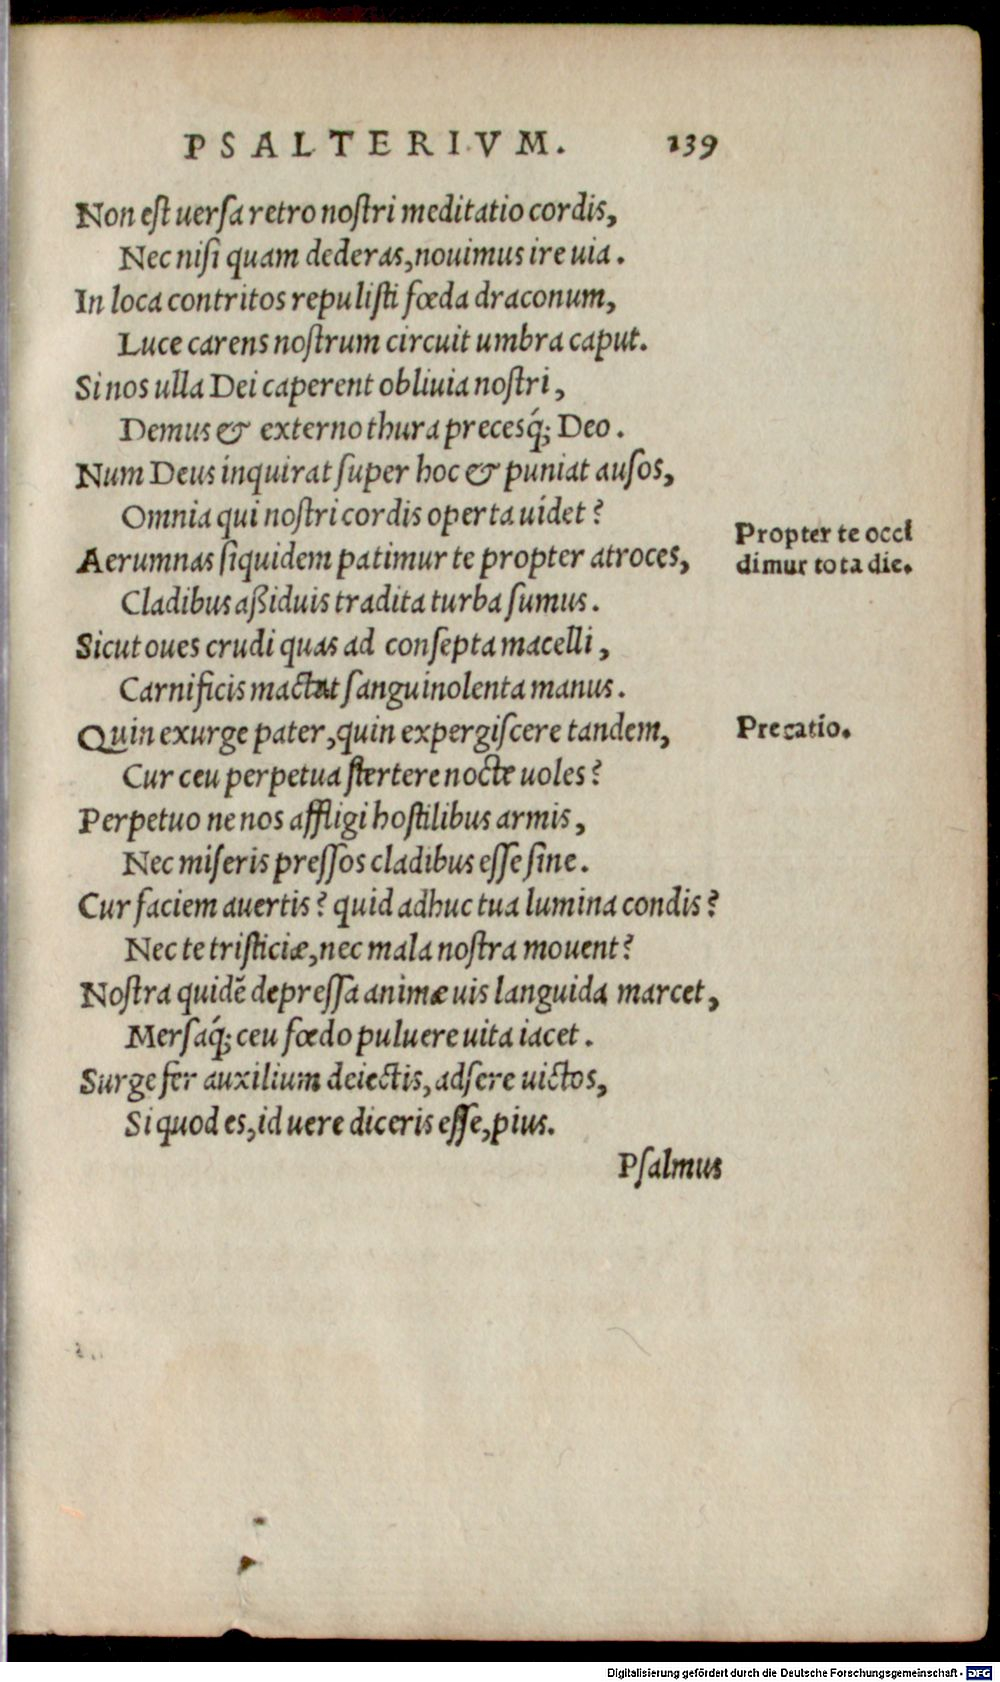 PSALTERIVM. 139
Non est uersa retro nostri meditatio cordis,
Nec nisi quam dederas, nouimus ire uia.
In loca contritos repulisti fœda draconum,
Luce carens nostrum circuit umbra caput.
Si nos ulla Dei caperent obliuia nostri,
Demus & externo thura precesq́; Deo.
Num Deus inquirat super hoc & puniat ausos,
Omnia qui nostri cordis operta uidet?
Propter te occi
dimur tota die.
Aerumnas siquidem patimur te propter atroces,
Cladibus aßiduis tradita turba sumus.
Sicut oues crudi quas ad consepta macelli,
Carnificis mactat sanguinolenta manus.
Quin exurge pater, quin expergiscere tandem,
Precatio.
Cur ceu perpetua stertere nocte uoles?
Perpetuo ne nos affligi hostilibus armis,
Nec miseris pressos cladibus esse sine.
Cur faciem auertis? quid adhuc tua lumina condis?
Nec te tristiciæ, nec mala nostra mouent?
Nostra quidẽ depressa animæ uis languida marcet,
Mersaq́; ceu fœdo puluere uita iacet.
Surge fer auxilium deiectis, adsere uictos,
Si quod es, id uere diceris esse, pius.
Psalmus
Digitalisierung gefördert durch die Deutsche Forschungsgemeinschaft - DFG